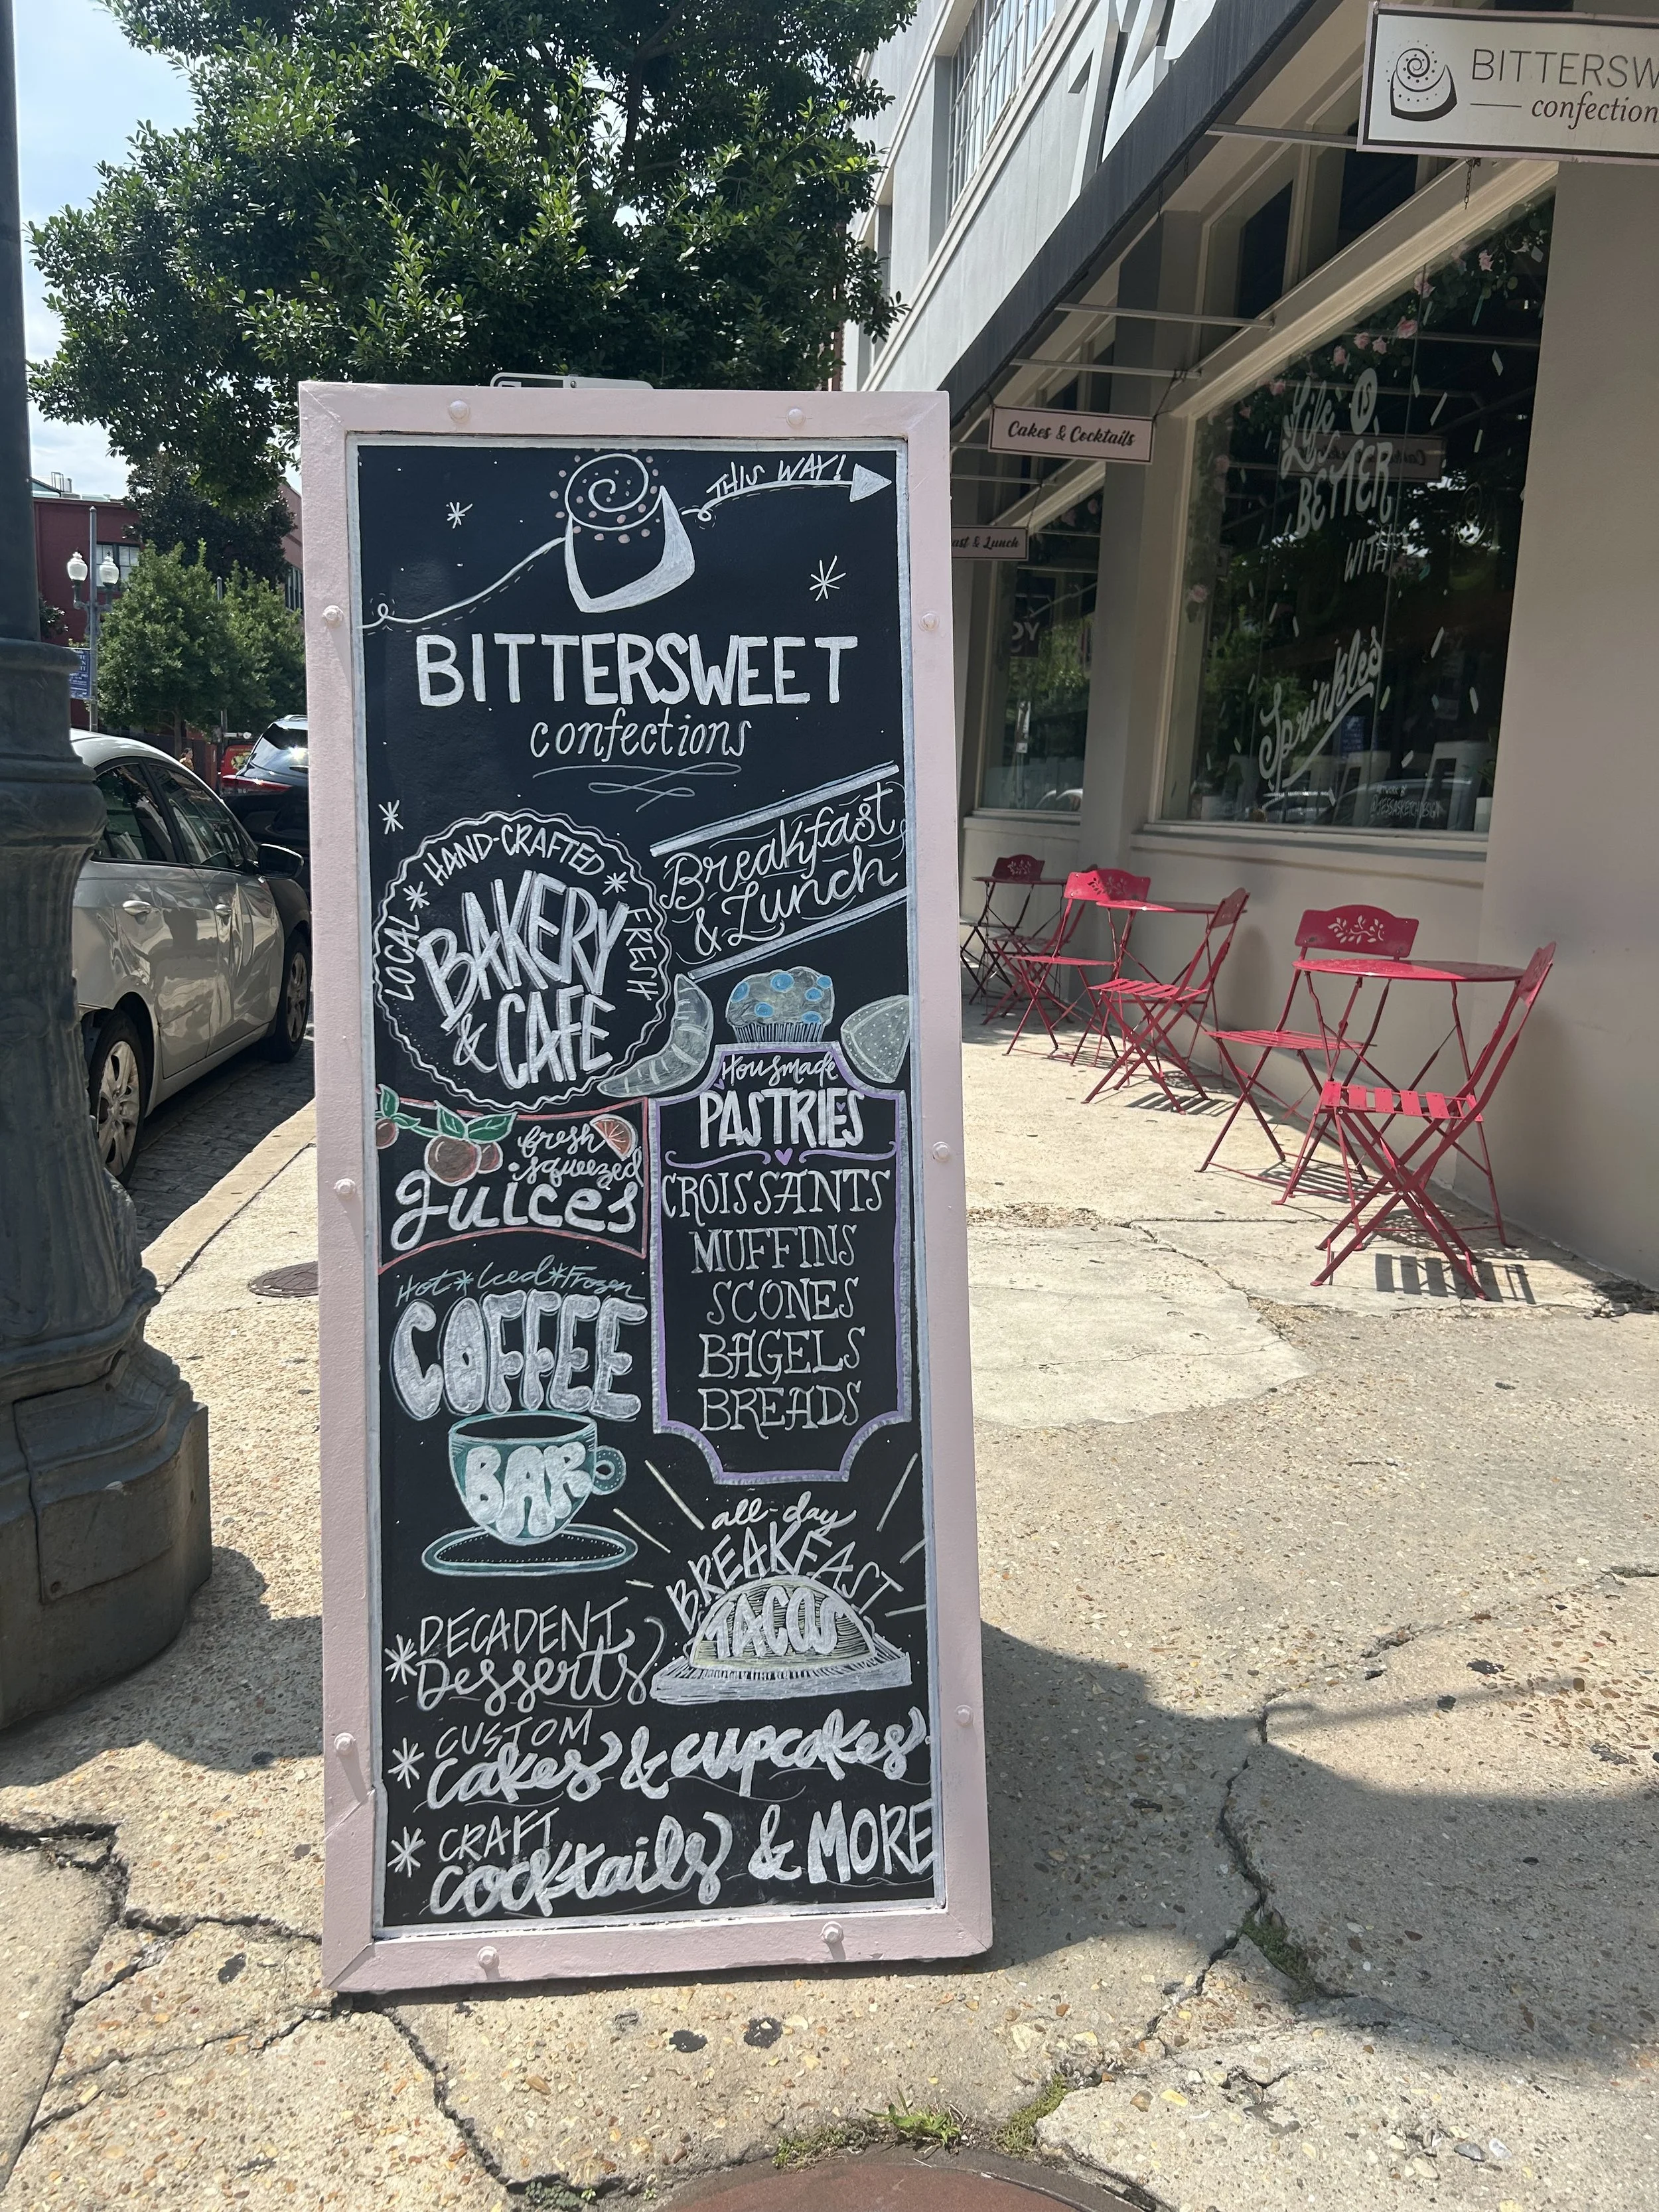 BITTERSW
confection
Cakes & Cocktails
& Lunch
Life is
BETTER
WITH
Sprinkles
THIS WAY!
BITTERSWEET
confections
HAND-CRAFTED
LOCAL
FRESH
BAKERY
& CAFE
Breakfast
& Lunch
Housmade
PASTRIES
CROISSANTS
MUFFINS
SCONES
BAGELS
BREADS
fresh
squeezed
juices
Hot*Iced*Frozen
COFFEE
BAR
all-day
BREAKFAST
TACOS
DECADENT
Desserts
CUSTOM
Cakes & cupcakes
CRAFT
Cocktails & MORE